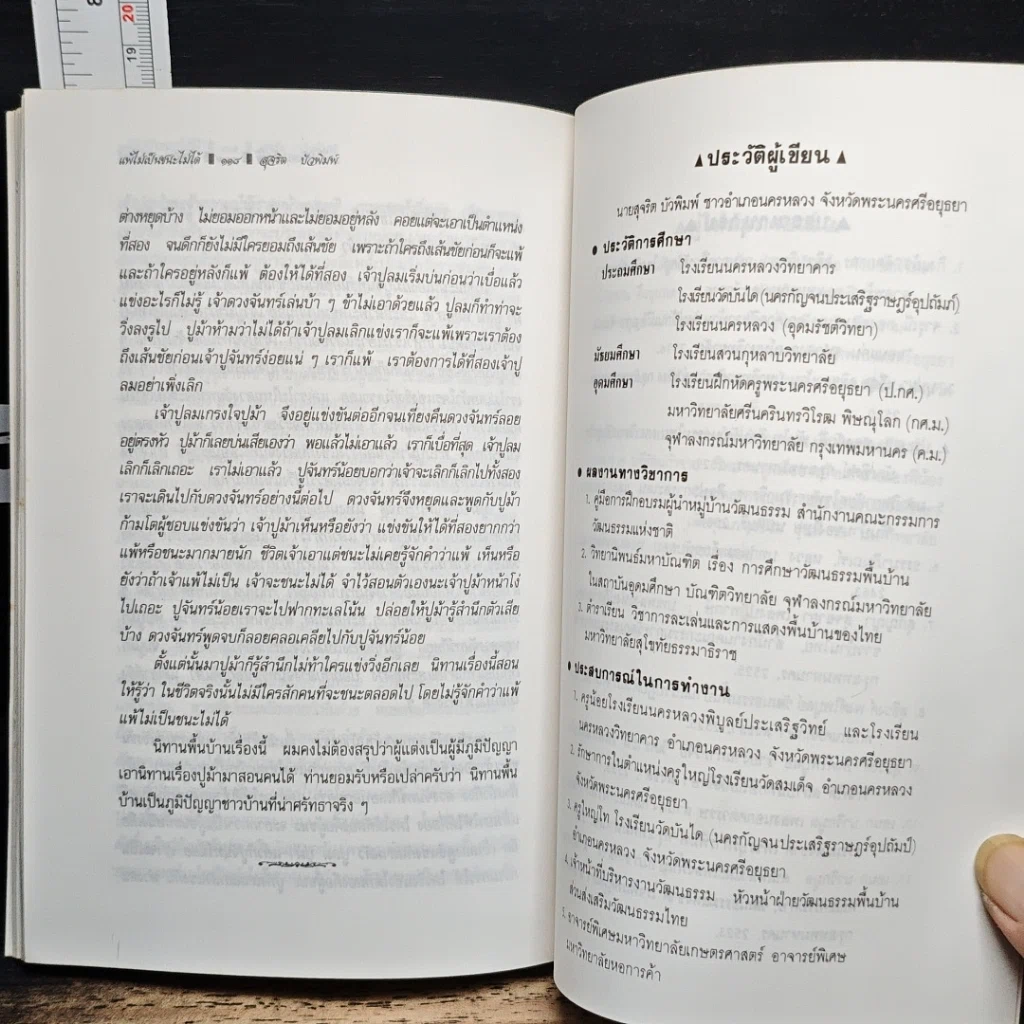 8
20
19
แพ้ไม่เป็นชนะไม่ได้ ▮ ๑๑๘ ▮ สุจริต บัวพิมพ์
ต่างหยุดบ้าง ไม่ยอมออกหน้าและไม่ยอมอยู่หลัง คอยแต่จะเอาเป็นตำแหน่ง
ที่สอง จนดึกก็ยังไม่มีใครยอมถึงเส้นชัย เพราะถ้าใครถึงเส้นชัยก่อนก็จะแพ้
และถ้าใครอยู่หลังก็แพ้ ต้องให้ได้ที่สอง เจ้าปูลมเริ่มบ่นก่อนว่าเบื่อแล้ว
แข่งอะไรก็ไม่รู้ เจ้าดวงจันทร์เล่นบ้า ๆ ข้าไม่เอาด้วยแล้ว ปูลมก็ทำท่าจะ
วิ่งลงรูไป ปูม้าห้ามว่าไม่ได้ถ้าเจ้าปูลมเลิกแข่งเราก็จะแพ้เพราะเราต้อง
ถึงเส้นชัยก่อนเจ้าปูจันทร์ง่อยแน่ ๆ เราก็แพ้ เราต้องการได้ที่สองเจ้าปู
ลมอย่าเพิ่งเลิก
เจ้าปูลมเกรงใจปูม้า จึงอยู่แข่งขันต่ออีกจนเที่ยงคืนดวงจันทร์ลอย
อยู่ตรงหัว ปูม้าก็เลยบ่นเสียเองว่า พอแล้วไม่เอาแล้ว เราก็เบื่อที่สุด เจ้าปูลม
เลิกก็เลิกเถอะ เราไม่เอาแล้ว ปูจันทร์น้อยบอกว่าเจ้าจะเลิกก็เลิกไปทั้งสอง
เราจะเดินไปกับดวงจันทร์อย่างนี้ต่อไป ดวงจันทร์จึงหยุดและพูดกับปูม้า
ก้ามโตผู้ชอบแข่งขันว่า เจ้าปูม้าเห็นหรือยังว่า แข่งขันให้ได้ที่สองยากกว่า
แพ้หรือชนะมากมายนัก ชีวิตเจ้าเอาแต่ชนะไม่เคยรู้จักคำว่าแพ้ เห็นหรือ
ยังว่าถ้าเจ้าแพ้ไม่เป็น เจ้าจะชนะไม่ได้ จำไว้สอนตัวเองนะเจ้าปูม้าหน้าโง่
ไปเถอะ ปูจันทร์น้อยเราจะไปฟากทะเลโน้น ปล่อยให้ปูม้ารู้สำนึกตัวเสีย
บ้าง ดวงจันทร์พูดจบก็ลอยคลอเคลียไปกับปูจันทร์น้อย
ตั้งแต่นั้นมาปูม้าก็รู้สำนึกไม่ท้าใครแข่งวิ่งอีกเลย นิทานเรื่องนี้สอน
ให้รู้ว่า ในชีวิตจริงนั้นไม่มีใครสักคนที่จะชนะตลอดไป โดยไม่รู้จักคำว่าแพ้
แพ้ไม่เป็นชนะไม่ได้
นิทานพื้นบ้านเรื่องนี้ ผมคงไม่ต้องสรุปว่าผู้แต่งเป็นผู้มีภูมิปัญญา
เอานิทานเรื่องปูม้ามาสอนคนได้ ท่านยอมรับหรือเปล่าครับว่า นิทานพื้น
บ้านเป็นภูมิปัญญาชาวบ้านที่น่าศรัทธาจริง ๆ
▲ ประวัติผู้เขียน ▲
นายสุจริต บัวพิมพ์ ชาวอำเภอนครหลวง จังหวัดพระนครศรีอยุธยา
● ประวัติการศึกษา
ประถมศึกษา โรงเรียนนครหลวงวิทยาคาร
โรงเรียนวัดบันได (นครกัญจนประเสริฐราษฎร์อุปถัมภ์)
โรงเรียนนครหลวง (อุดมรัชต์วิทยา)
มัธยมศึกษา โรงเรียนสวนกุหลาบวิทยาลัย
อุดมศึกษา โรงเรียนฝึกหัดครูพระนครศรีอยุธยา (ป.กศ.)
มหาวิทยาลัยศรีนครินทรวิโรฒ พิษณุโลก (กศ.ม.)
จุฬาลงกรณ์มหาวิทยาลัย กรุงเทพมหานคร (ค.ม.)
● ผลงานทางวิชาการ
1. คู่มือการฝึกอบรมผู้นำหมู่บ้านวัฒนธรรม สำนักงานคณะกรรมการ
วัฒนธรรมแห่งชาติ
2. วิทยานิพนธ์มหาบัณฑิต เรื่อง การศึกษาวัฒนธรรมพื้นบ้าน
ในสถาบันอุดมศึกษา บัณฑิตวิทยาลัย จุฬาลงกรณ์มหาวิทยาลัย
3. ตำราเรียน วิชาการละเล่นและการแสดงพื้นบ้านของไทย
มหาวิทยาลัยสุโขทัยธรรมาธิราช
● ประสบการณ์ในการทำงาน
1. ครูน้อยโรงเรียนนครหลวงพิบูลย์ประเสริฐวิทย์ และโรงเรียน
นครหลวงวิทยาคาร อำเภอนครหลวง จังหวัดพระนครศรีอยุธยา
2. รักษาการในตำแหน่งครูใหญ่โรงเรียนวัดสมเด็จ อำเภอนครหลวง
จังหวัดพระนครศรีอยุธยา
3. ครูใหญ่โท โรงเรียนวัดบันได (นครกัญจนประเสริฐราษฎร์อุปถัมป์)
อำเภอนครหลวง จังหวัดพระนครศรีอยุธยา
4. เจ้าหน้าที่บริหารงานวัฒนธรรม หัวหน้าฝ่ายวัฒนธรรมพื้นบ้าน
ส่วนส่งเสริมวัฒนธรรมไทย
5. อาจารย์พิเศษมหาวิทยาลัยเกษตรศาสตร์ อาจารย์พิเศษ
มหาวิทยาลัยหอการค้า